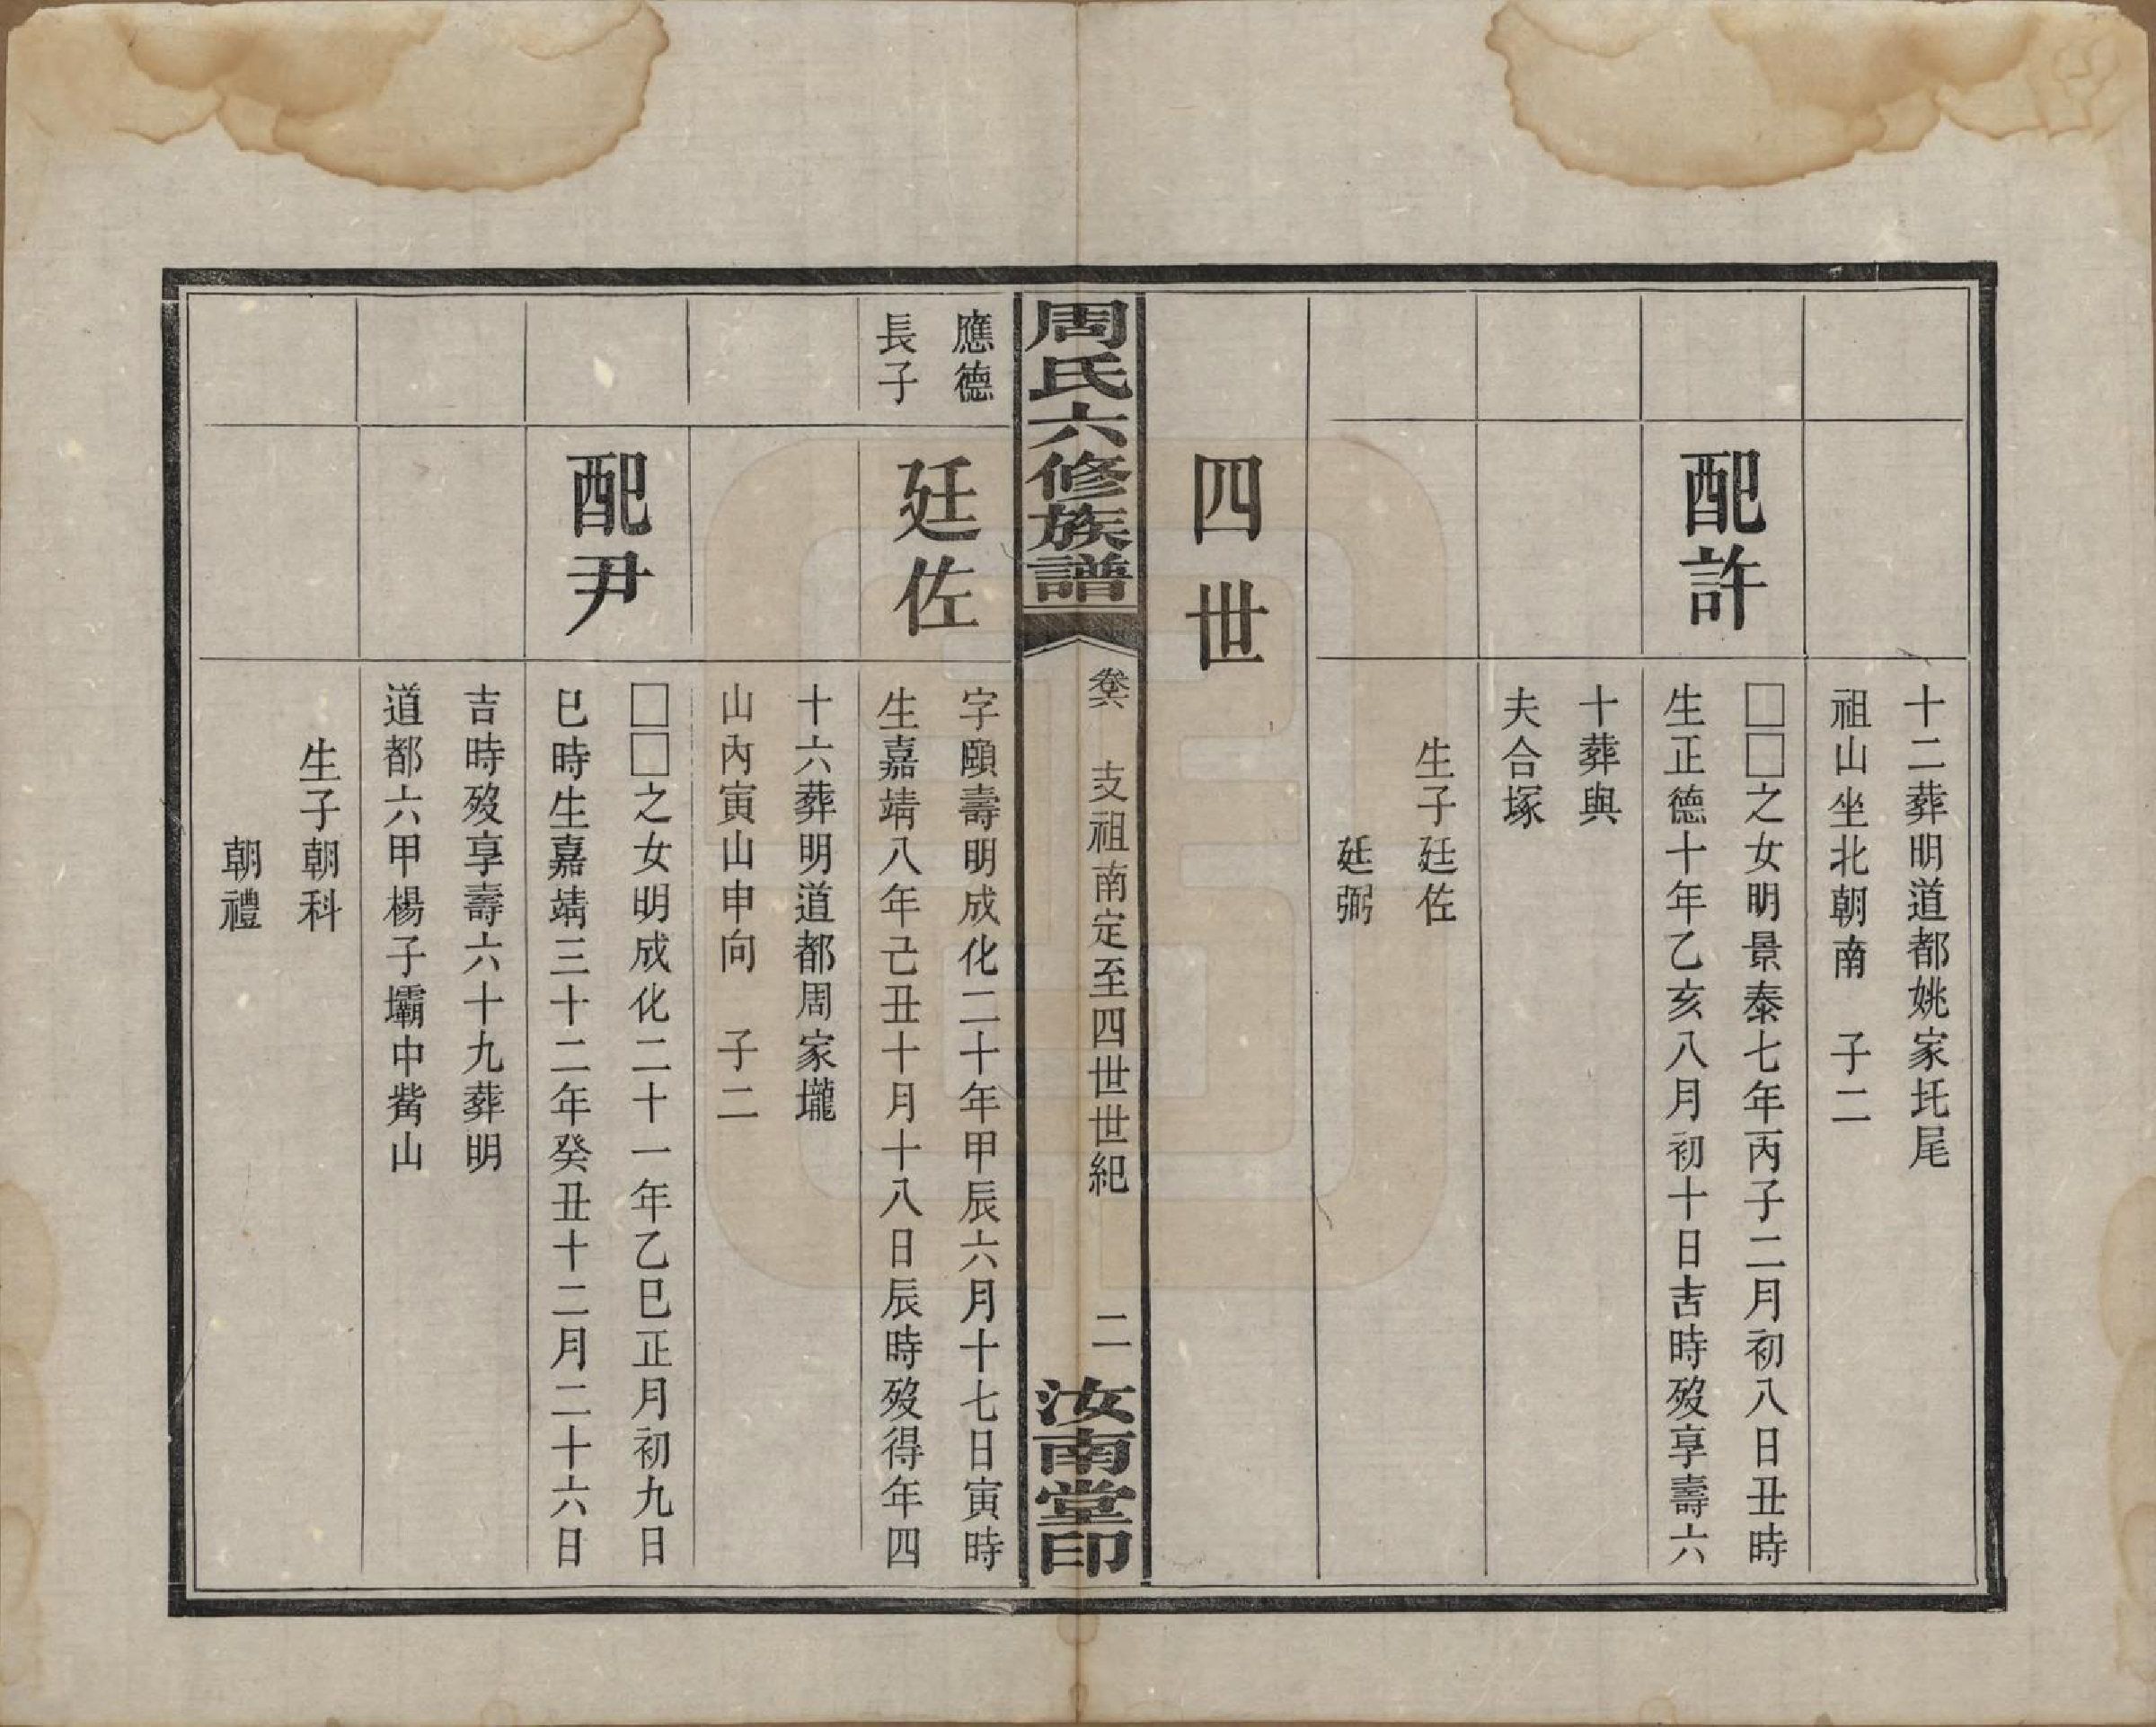 十二葬明道都姚家圫尾
祖山坐北朝南　子二
配許
□□之女明景泰七年丙子二月初八日丑時
生正德十年乙亥八月初十日吉時歿享壽六
十葬與
夫合塚
生子廷佐
廷弼
四世
周氏六修族譜
卷六　支祖南定至四世世紀　二
汝南堂印
應德
長子
廷佐
字頤壽明成化二十年甲辰六月十七日寅時
生嘉靖八年己丑十月十八日辰時歿得年四
十六葬明道都周家壠
山內寅山申向　子二
配尹
□□之女明成化二十一年乙巳正月初九日
巳時生嘉靖三十二年癸丑十二月二十六日
吉時歿享壽六十九葬明
道都六甲楊子壩中觜山
生子朝科
朝禮